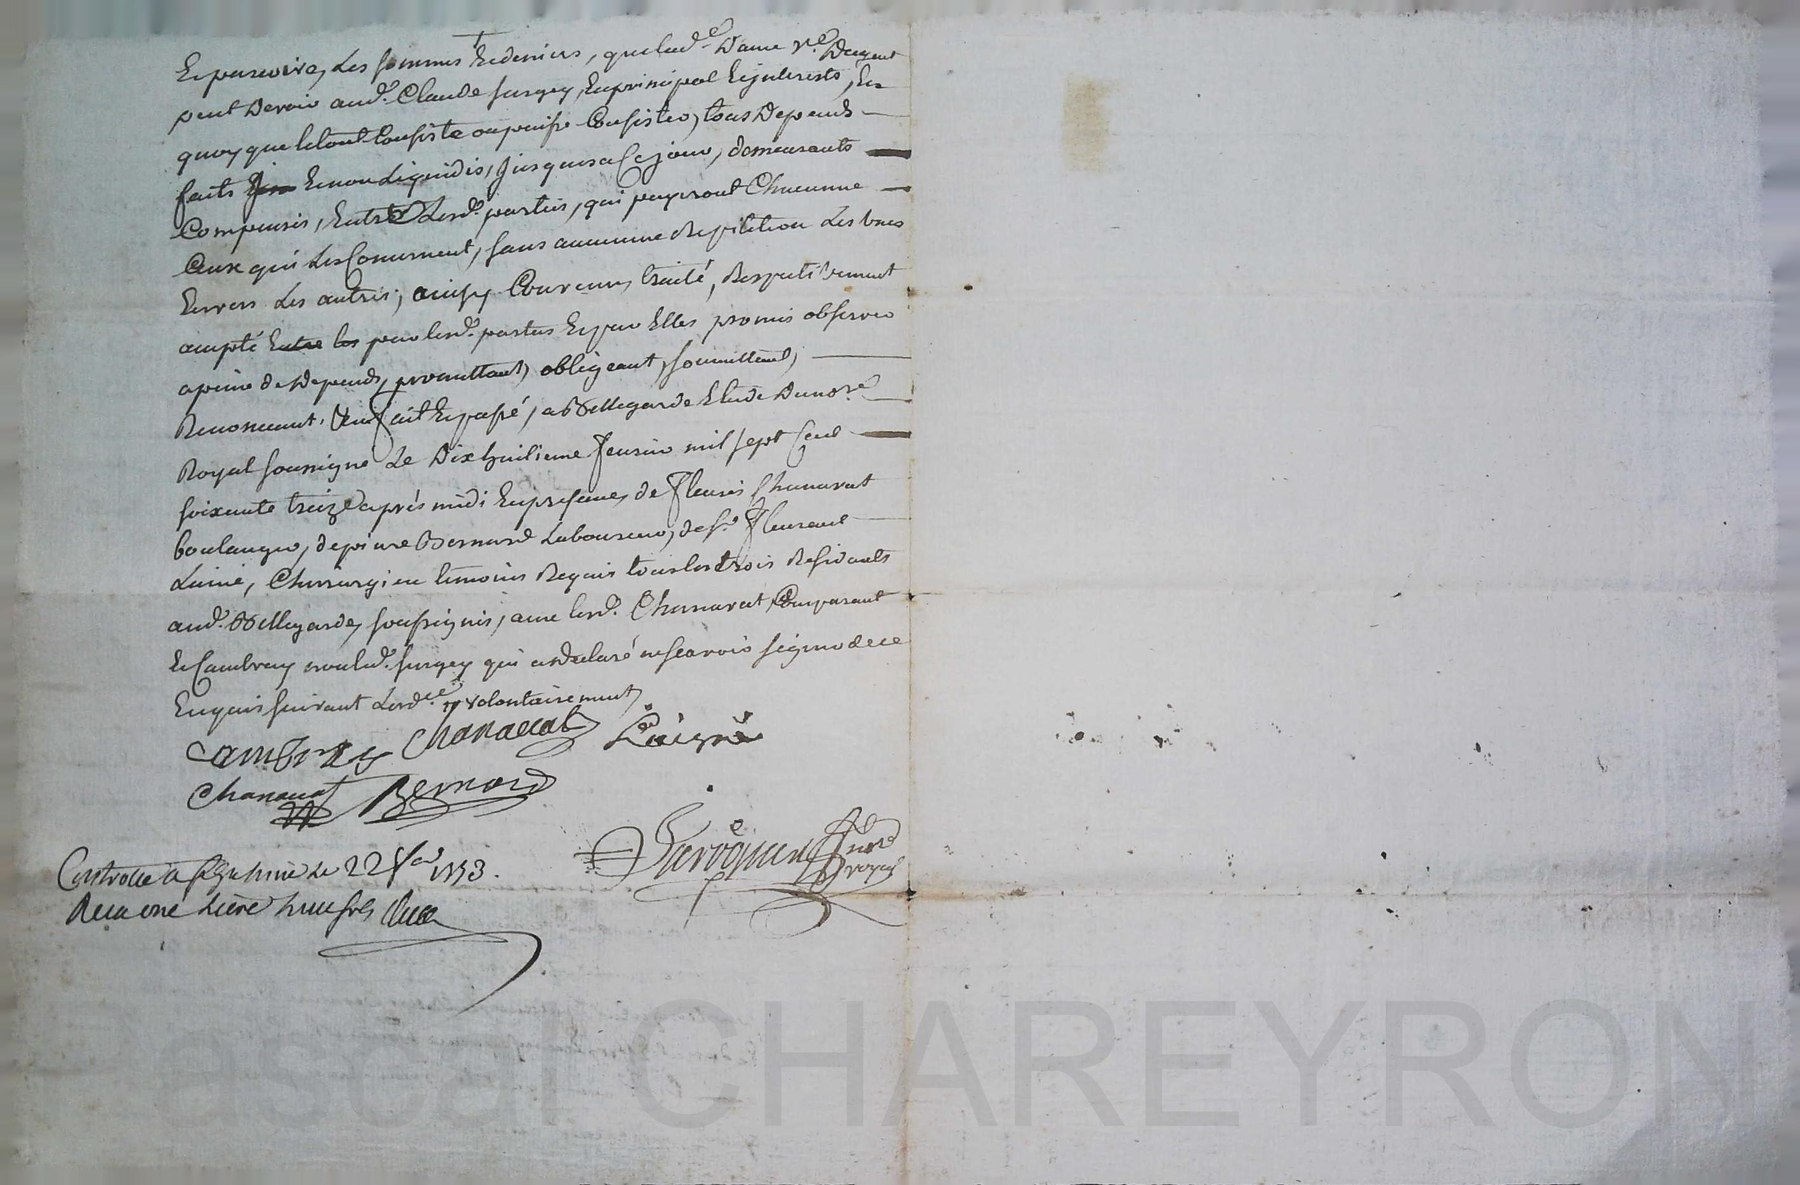 Et parvoire, Les sommes Et deniers, que lad.e Dame v.e
peut Devoir aud.t Claude surgey, En principal Et jnterests, En
quoy que le tout Consiste ou puisse Consister, tous Depends
faits Et non Liquidés, jusques a Ce jour, demeurants
Compensés, Entre Lesd. parties, qui payeront Chacunne
Ceux qui Les Concernent, sans aucunne Repetition Les Unes
Envers Les autres; ainsy Convenu, traité, Respectivement
accepté Entre les par lesd. parties Et par Elles promis observer
a peine de Depends, promettant, obligeant, soumettant,
Renonceant. fait Et passé, a Bellegarde Etude Du no.re
Royal soussigné Le Dix huitieme fevrier mil sept Cent
soixante treize après midi En presence, de fleuris Chanavat
boulanger, de pierre Bernard Laboureur, de s.r fleurant
Lainé, Chirurgien temoins Requis tous les trois Residants
aud. Bellegarde, soussignés, avec led. Chanavat Comparant
Et Cambray non led. surgey qui a declaré ne scavoir signer de ce
Enquis suivant Lord.ce volontairement
Cambray Chanavat Lainé
Chanavat Bernard
no.re
royal
Controllé a le 22 f.er 1773.
Recu une Livre huit sols
ascal CHAREYRON